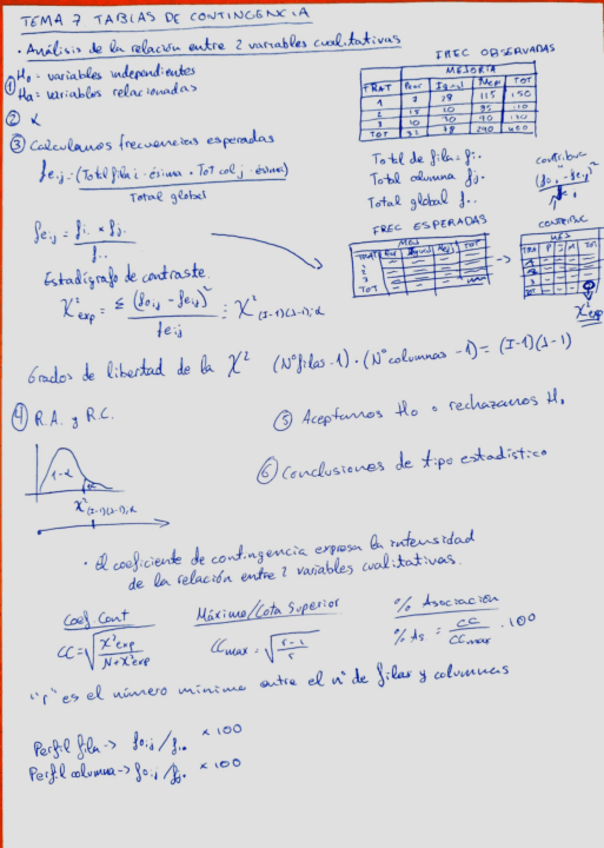 TEMA 7 TABLAS DE CONTINGENCIA
· Análisis de la relación entre 2 variables cualitativas
① H₀: variables independientes
Ha: variables relacionadas
② α
③ Calculamos frecuencias esperadas
fe.ij = (Total fila i-ésima · Tot col j-ésima)
Total global
feij = fi. × f.j
f..
Estadígrafo de contraste.
χ²exp = Σ (foij - feij)² ≡ χ²(I-1)(J-1);α
feij
FREC OBSERVADAS
MEJORIA
TRAT Peor Igual Mejor TOT
1 7 28 115 150
2 15 20 85 120
3 10 30 90 130
TOT 32 78 290 400
Total de fila = fi.
Total columna f.j
Total global f..
contribuc
(foij - feij)²
feij
FREC ESPERADAS
MEJ
TRAT Igual Mej TOT
1
2
3
TOT
CONTRIBUC
MEJ
TRA P = M TOT
TOT
χ²exp
Grados de libertad de la χ² (Nº filas -1) · (Nº columnas -1) = (I-1)(J-1)
④ R.A. y R.C.
1-α α
χ²(I-1)(J-1);α
⑤ Aceptamos H₀ o rechazamos H₀
⑥ Conclusiones de tipo estadístico
· El coeficiente de contingencia expresa la intensidad
de la relación entre 2 variables cualitativas.
Coef. Cont
CC = √ χ²exp
N+χ²exp
Máximo/Cota Superior
CCmax = √ r-1
r
% Asociación
% As = CC · 100
CCmax
"r" es el número mínimo entre el nº de filas y columnas
Perfil fila -> foij / fi. × 100
Perfil columna -> foij / f.j × 100